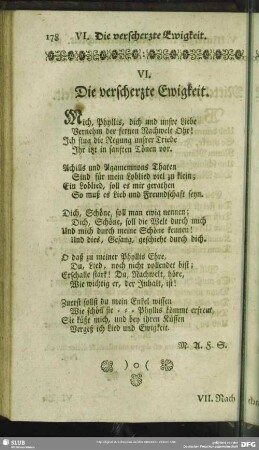 178 VI. Die verscherzte Ewigkeit.
VI.
Die verscherzte Ewigkeit.
Mich, Phyllis, dich und unsre Liebe
Vernehm der fernen Nachwelt Ohr!
Ich sing die Regung unsrer Triebe
Ihr itzt in sanften Tönen vor.
Achills und Agamemnons Thaten
Sind für mein Loblied viel zu klein;
Ein Loblied, soll es mir gerathen
So muß es Lieb und Freundschaft seyn.
Dich, Schöne, soll man ewig nennen;
Dich, Schöne, soll die Welt durch mich
Und mich durch meine Schöne kennen!
Und dies, Gesang, geschieht durch dich.
O daß zu meiner Phyllis Ehre,
Du, Lied, noch nicht vollendet bist;
Erschalle stark! Du, Nachwelt, höre,
Wie wichtig er, der Inhalt, ist!
Zuerst sollst du mein Enkel wissen
Wie schön sie - - - Phyllis kömmt erfreut,
Sie küßt mich, und bey ihren Küssen
Vergeß ich Lied und Ewigkeit.
M. A. F. S.
) o (
VII. Nach
SLUB
DFG